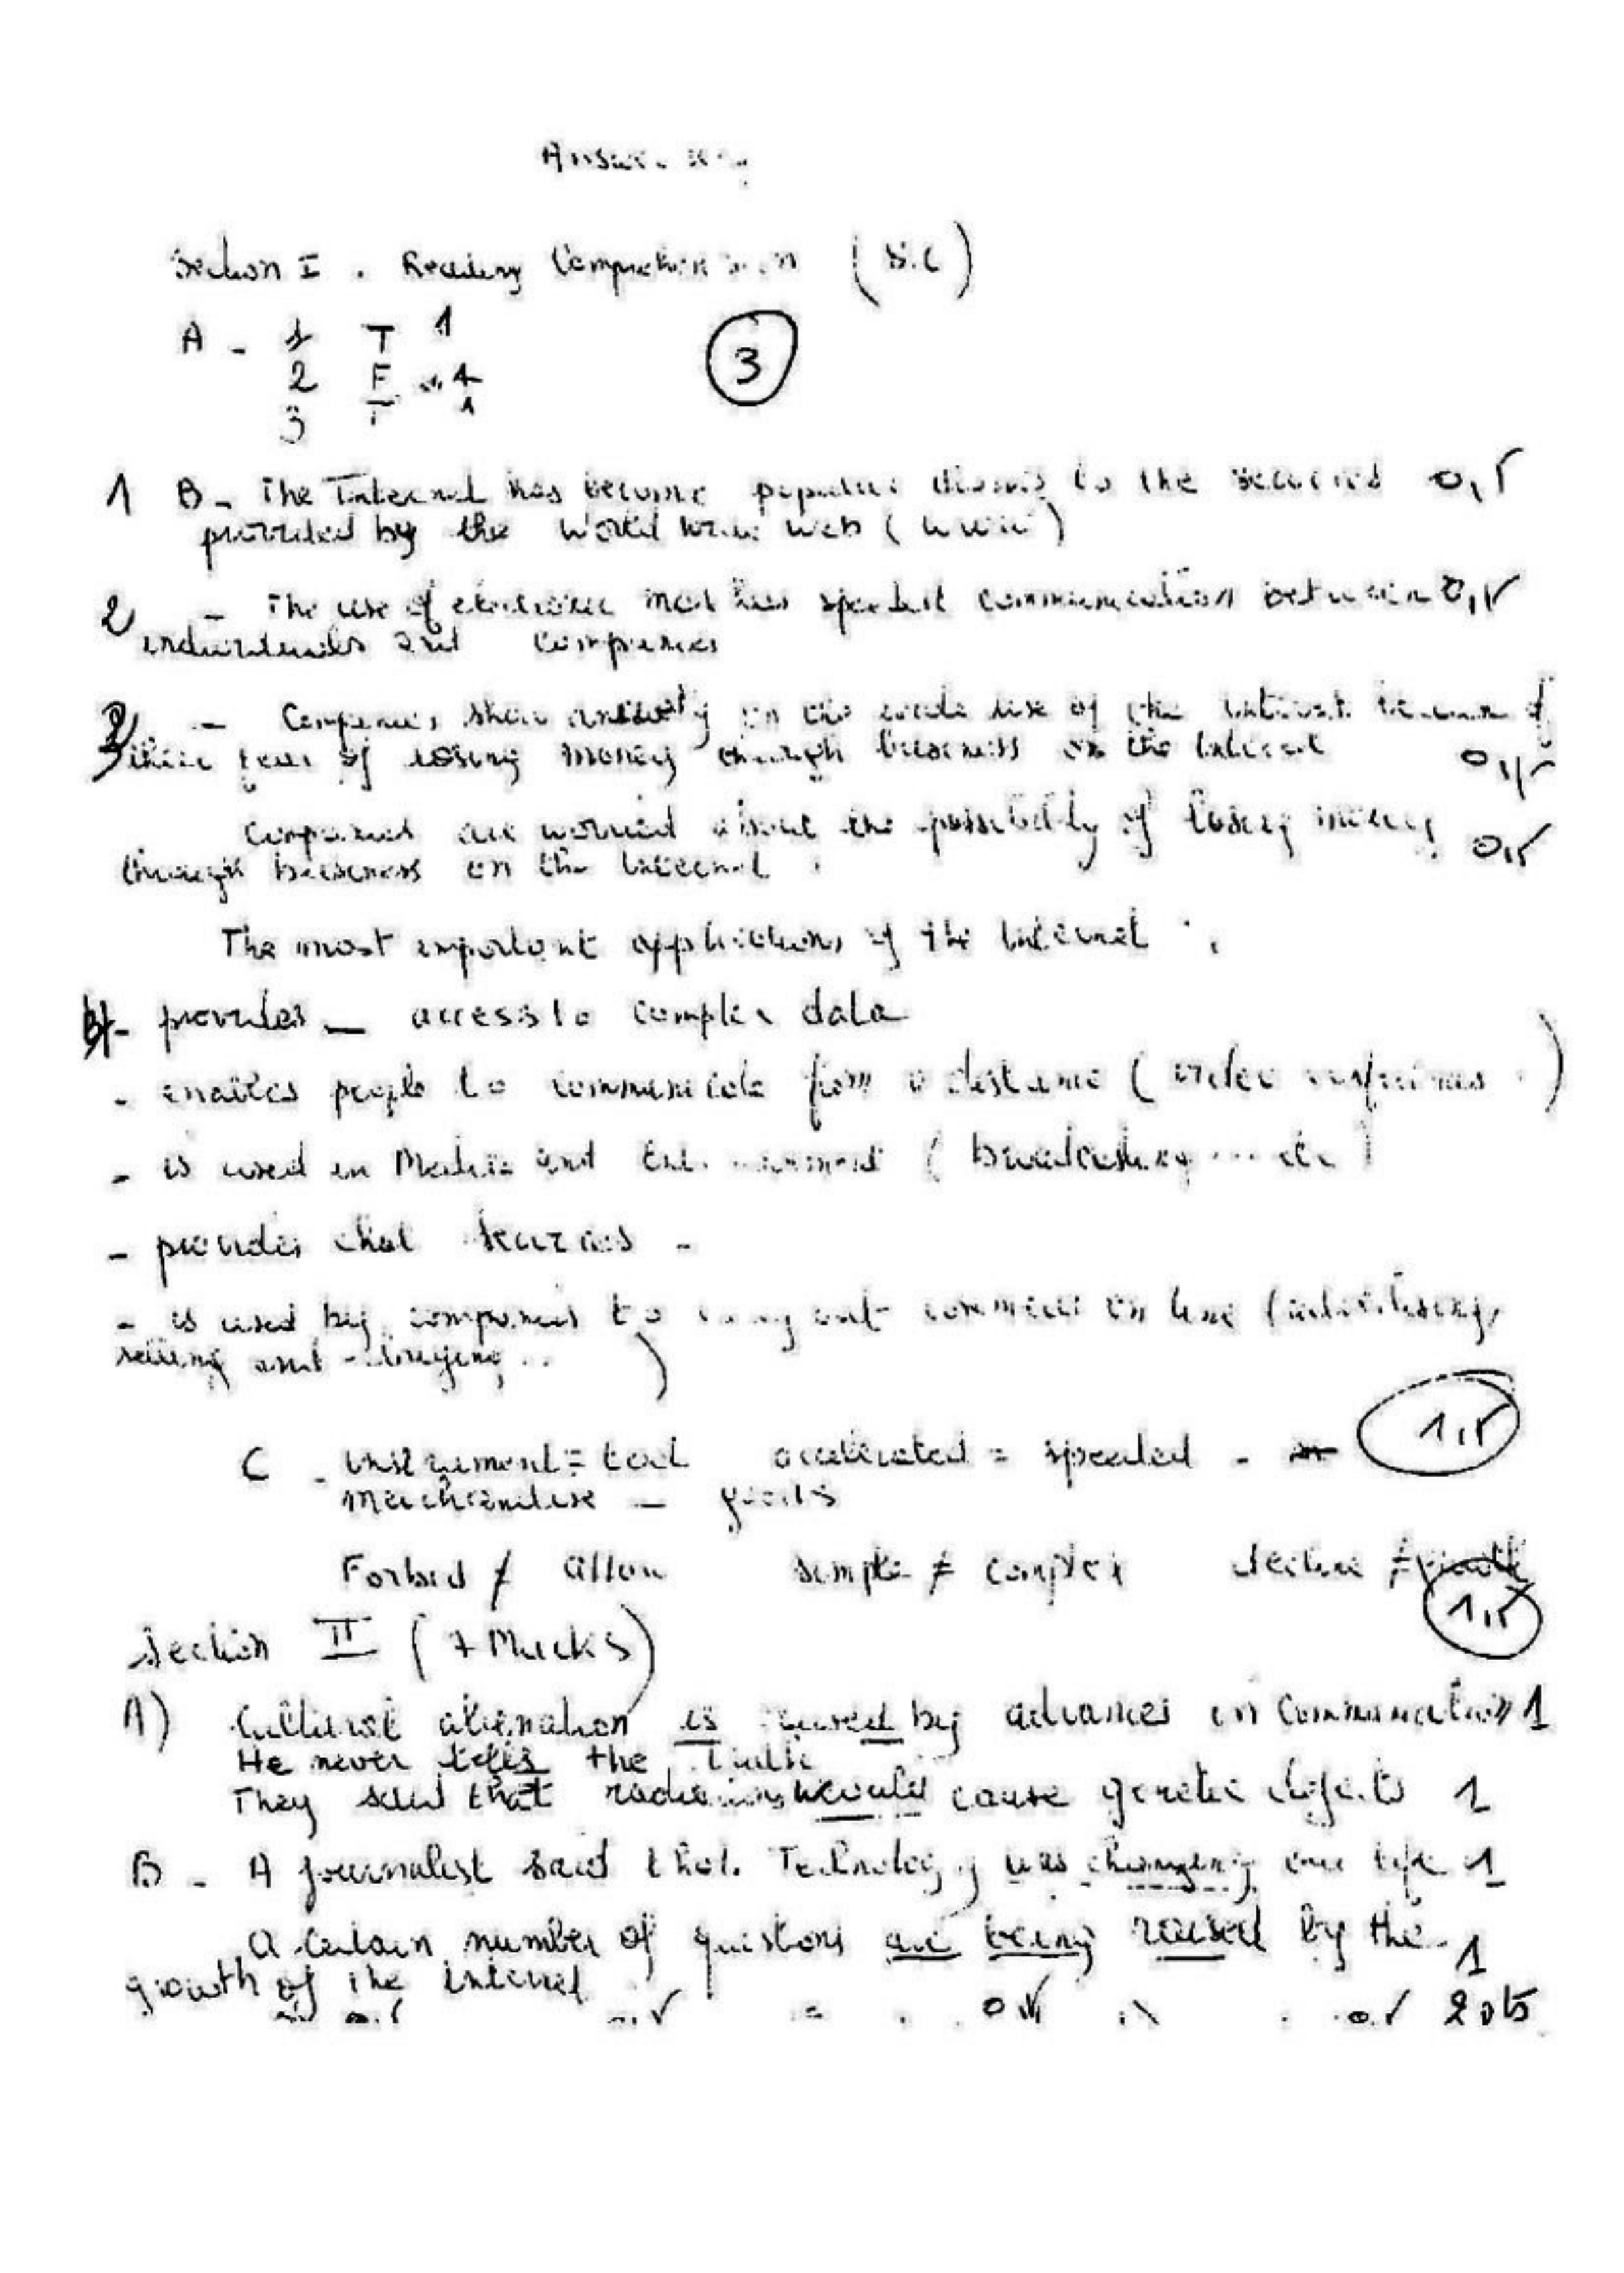 Answer key
Section I . Reading Comprehension
A - 1 T 1
2 F 1
3 T 1
3
1 B - The Internet has become popular thanks to the services 0,5
provided by the world wide web (www)
2 - The use of electronic mail has speeded communication between 0,5
individuals and companies
3 - Companies show anxiety on the use of the internet because of
their fear of losing money through business on the internet 0,5
Companies are worried about the possibility of losing money 0,5
through business on the internet .
The most important applications of the internet :
B/- provides - access to complex data
- enables people to communicate from a distance (video )
- is used in Media and (broadcasting ... etc )
- provides chat services -
- is used by companies to carry out commerce on line (advertising,
selling and buying .. )
C - instrument = tool accelerated = speeded - 1,5
merchandise - goods
Forbid ≠ allow simple ≠ complex decline ≠ growth
1,5
Section II (7 Marks)
A) Cultural alienation is caused by advances in communication 1
He never tells the truth
They said that radiations would cause genetic defects 1
B - A journalist said that Technology was changing our life 1
A certain number of questions are being raised by the 1
growth of the internet